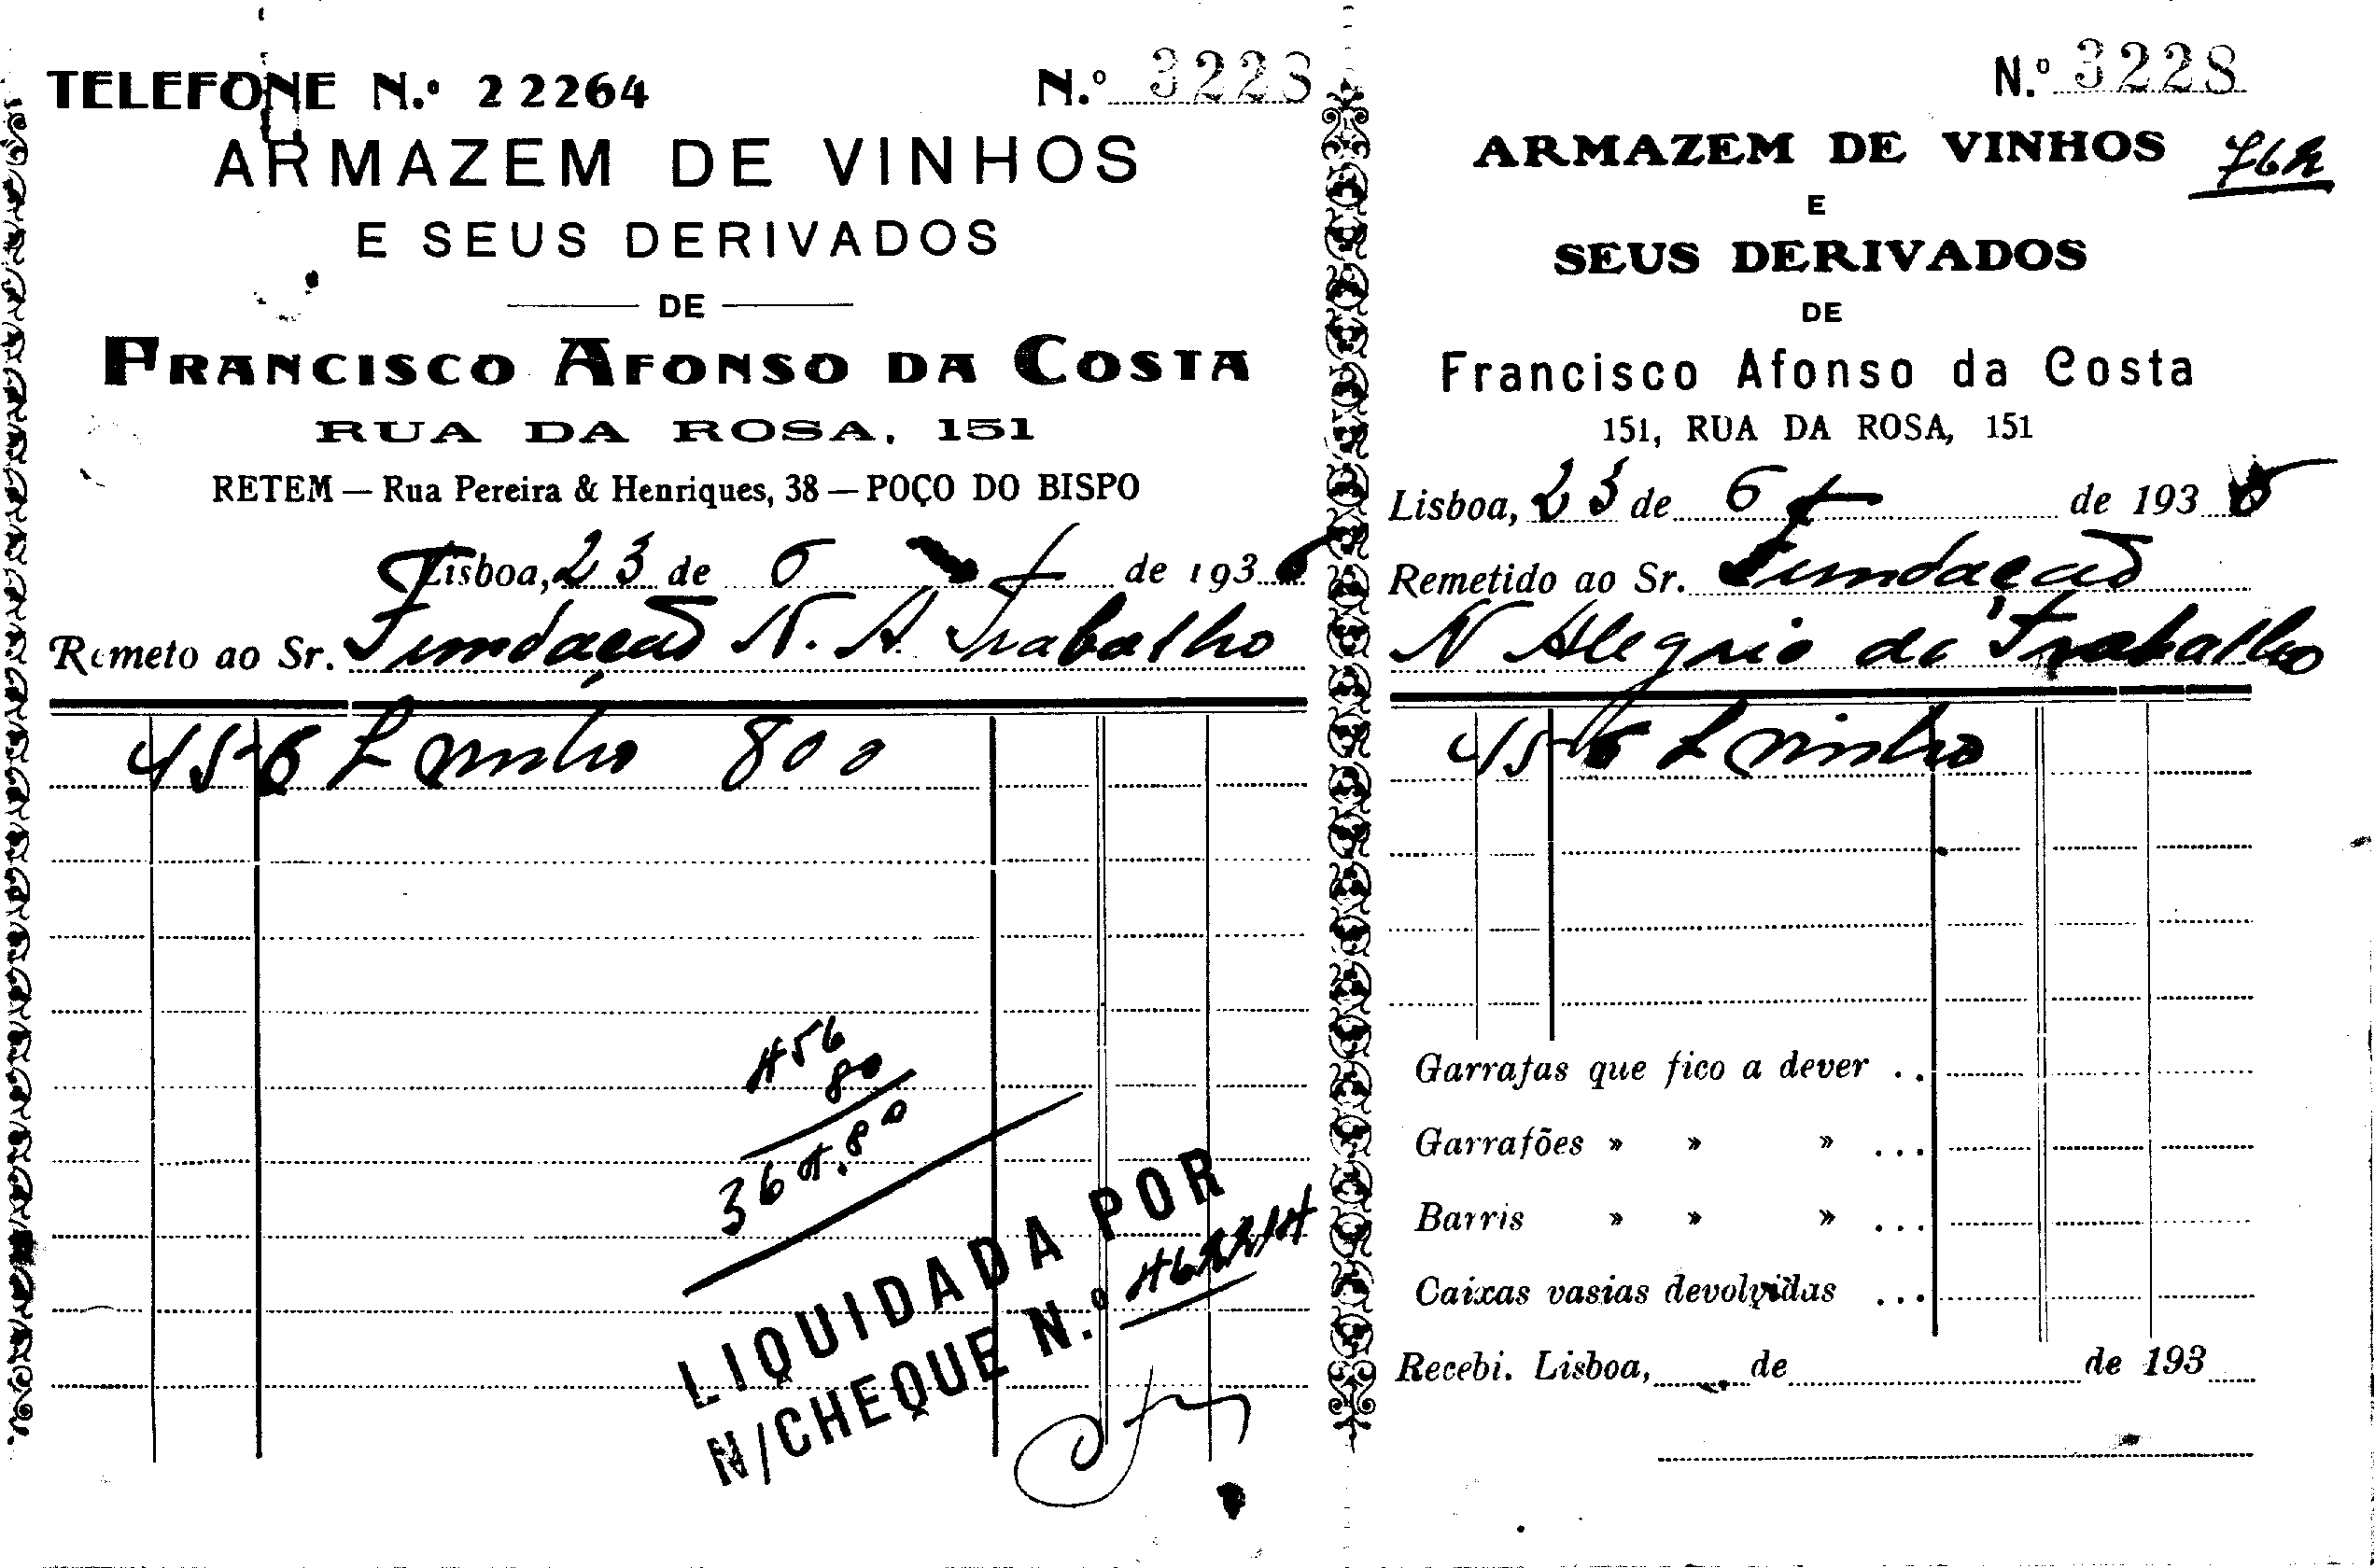 TELEFONE N.º 22264
N.º 3228
ARMAZEM DE VINHOS
E SEUS DERIVADOS
DE
FRANCISCO AFONSO DA COSTA
RUA DA ROSA, 151
RETEM — Rua Pereira & Henriques, 38 — POÇO DO BISPO
Lisboa, 23 de 6 de 1936
Remeto ao Sr. Fundação N. A. Trabalho
456 L vinho 800
456
80
364.80
LIQUIDADA POR
N/CHEQUE N.º
N.º 3228
ARMAZEM DE VINHOS
E
SEUS DERIVADOS
DE
Francisco Afonso da Costa
151, RUA DA ROSA, 151
Lisboa, 23 de 6 de 1936
Remetido ao Sr. Fundação
N Alegria do Trabalho
456 L vinho
Garrafas que fico a dever ..
Garrafões » » » ...
Barris » » » ...
Caixas vasias devolvidas ...
Recebi. Lisboa, de de 193